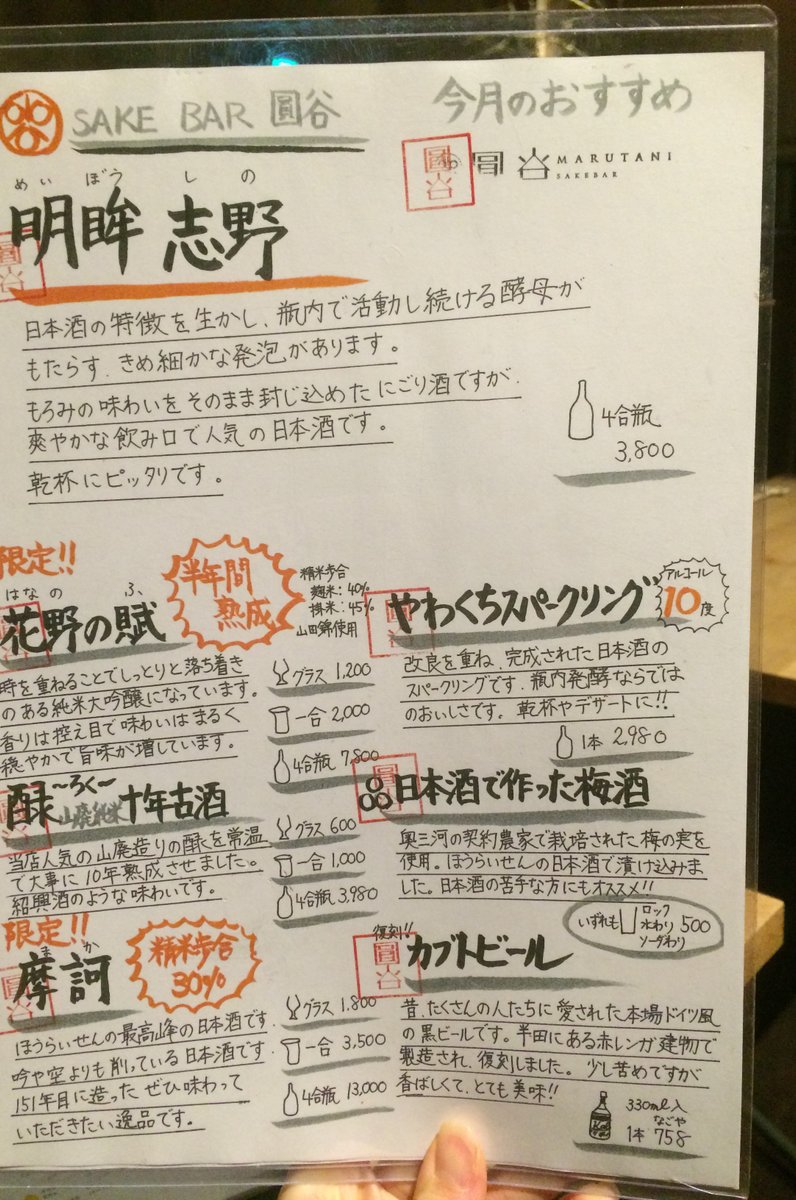 SAKE BAR 圓谷
今月のおすすめ
圓谷
圓谷 MARUTANI
SAKEBAR
めいぼう しの
明眸 志野
日本酒の特徴を生かし、瓶内で活動し続ける酵母が
もたらす、きめ細かな発泡があります。
もろみの味わいをそのまま封じ込めたにごり酒ですが、
爽やかな飲み口で人気の日本酒です。
乾杯にピッタリです。
4合瓶
3,800
限定!!
はなの ふ
花野の賦
半年間
熟成
精米歩合
麹米:40%
掛米:45%
山田錦使用
時を重ねることでしっとりと落ち着き
のある純米大吟醸になっています。
香りは控え目で味わいはまるく
穏やかで旨味が増しています。
グラス 1,200
一合 2,000
4合瓶 7,800
〜ろく〜
山廃純米 十年古酒
当店人気の山廃造りの
を常温
で大事に10年熟成させました。
紹興酒のような味わいです。
グラス 600
一合 1,000
4合瓶 3,980
限定!!
まか
摩訶
精米歩合
30%
ほうらいせんの最高峰の日本酒です。
吟や空よりも削っている日本酒です。
151年目に造った ぜひ味わって
いただきたい逸品です。
グラス 1,800
一合 3,500
4合瓶 13,000
やわくちスパークリング
アルコール
10度
改良を重ね、完成された日本酒の
スパークリングです。瓶内発酵ならでは
のおいしさです。乾杯やデザートに!!
1本 2,980
日本酒で作った梅酒
奥三河の契約農家で栽培された梅の実を
使用。ほうらいせんの日本酒で漬け込みま
した。日本酒の苦手な方にもオススメ!!
いずれも ロック
水わり 500
ソーダわり
復刻!!
カブトビール
昔、たくさんの人たちに愛された本場ドイツ風
の黒ビールです。半田にある赤レンガ建物で
製造され、復刻しました。少し苦めですが
香ばしくて、とても美味!!
330ml入
なごや
1本 758